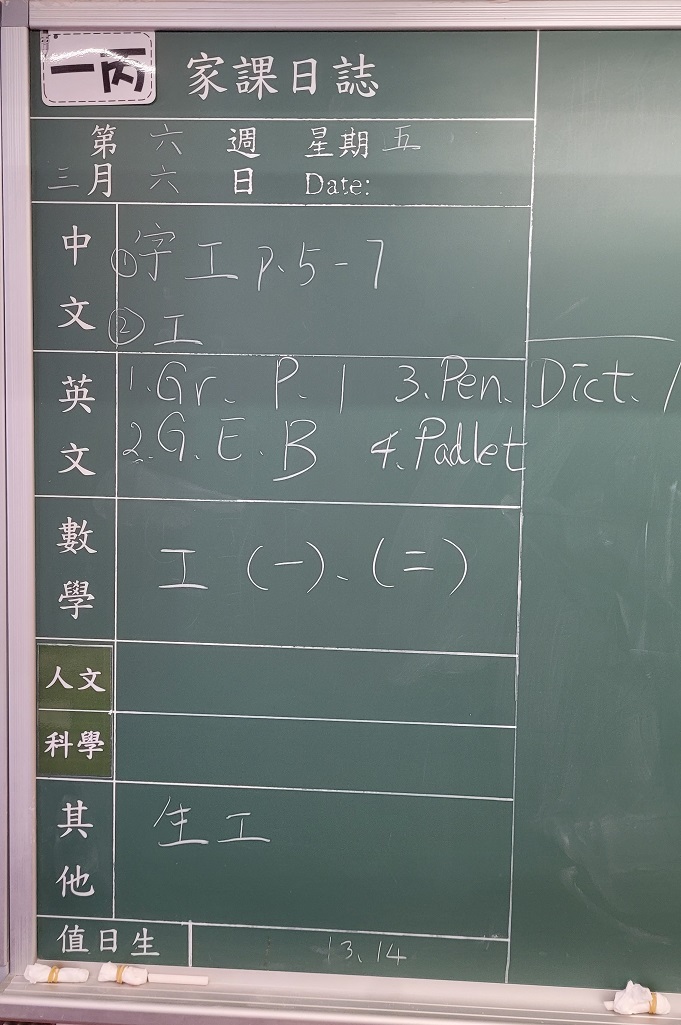 一丙
家課日誌
第 六 週 星期 五
三月 六 日 Date:
中文
①字 工 p.5-7
② 工
英文
1. Gr. P. 1 3. Pen. Dict. 1
2. G. E. B 4. Padlet
數學
工 (一)、(二)
人文
科學
其他
生工
值日生 13、14